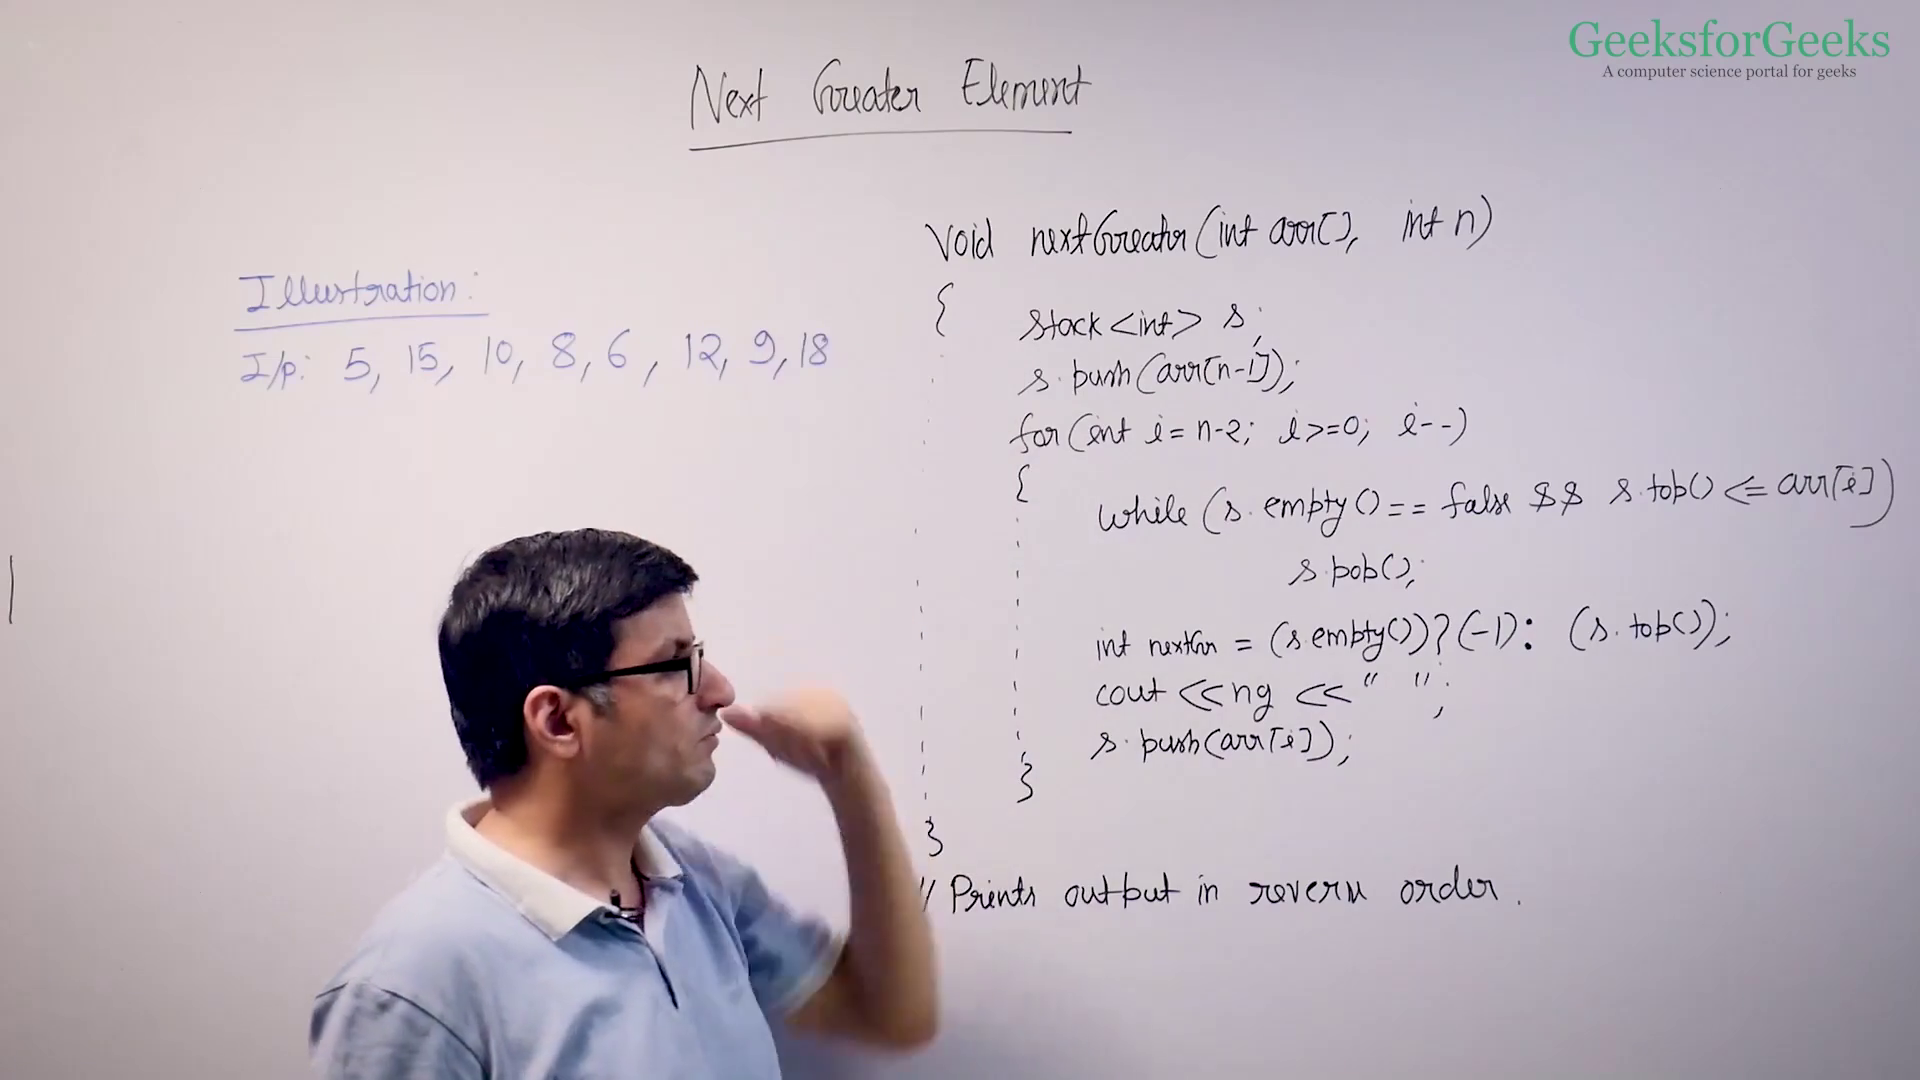 GeeksforGeeks
A computer science portal for geeks
Next Greater Element
Illustration:
I/p: 5, 15, 10, 8, 6, 12, 9, 18
Void nextGreater(int arr[], int n)
{
stack<int> s;
s.push(arr[n-1]);
for(int i= n-2; i>=0; i--)
{
while (s.empty()== false && s.top() <= arr[i])
s.pop();
int nextGr = (s.empty())?(-1): (s.top());
cout <<ng <<" ";
s.push(arr[i]);
}
}
// Prints output in reverse order.